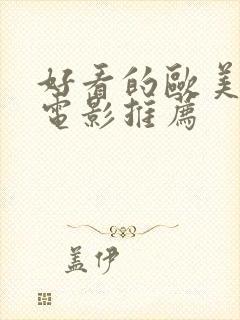 好看的歐美
電影推薦
蓋伊